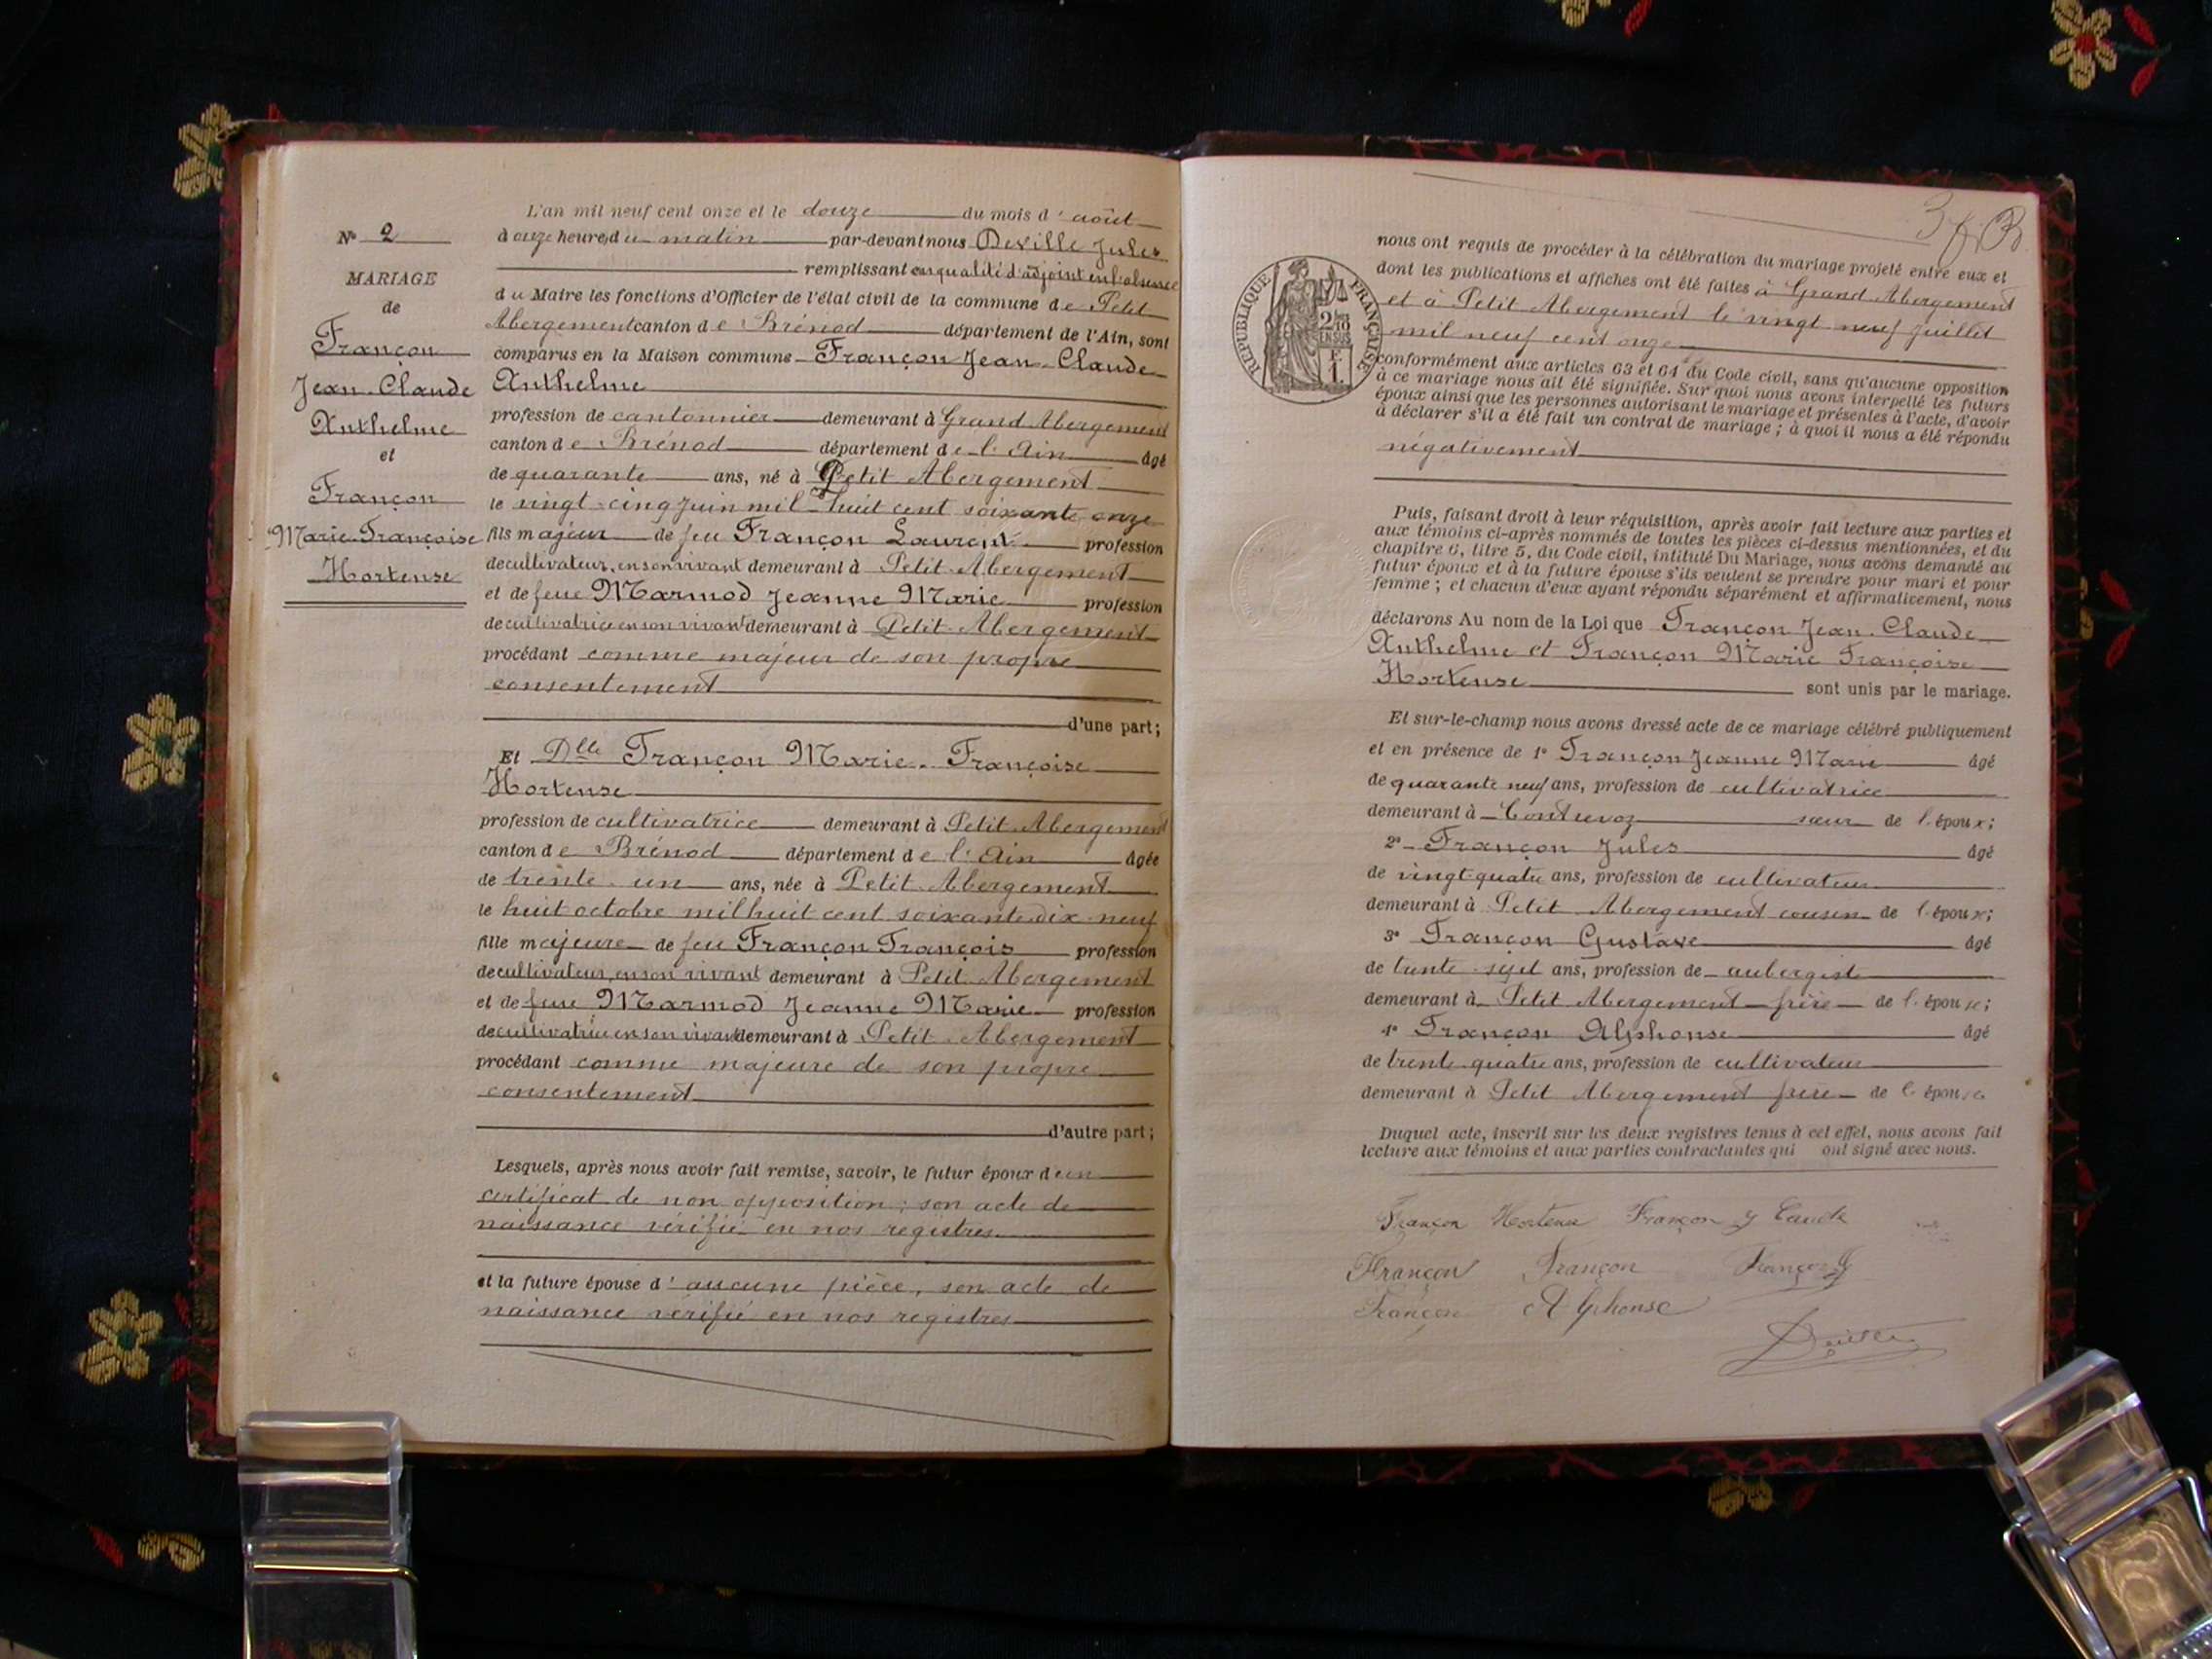 N° 2
MARIAGE
de
Françon
Jean-Claude
Anthelme
et
Françon
Marie-Françoise
Hortense
L'an mil neuf cent onze et le douze du mois d'août
à onze heures du matin par-devant nous Deville Jules
remplissant en qualité d'adjoint en l'absence
du Maire les fonctions d'Officier de l'état civil de la commune de Petit
Abergement canton de Brénod département de l'Ain, sont
comparus en la Maison commune Françon Jean-Claude
Anthelme
profession de cantonnier demeurant à Grand Abergement
canton de Brénod département de l'Ain âgé
de quarante ans, né à Petit Abergement
le vingt-cinq juin mil-huit cent soixante onze
fils majeur de feu Françon Laurent profession
de cultivateur, en son vivant demeurant à Petit-Abergement
et de feue Marmod Jeanne Marie profession
de cultivatrice en son vivant demeurant à Petit-Abergement
procédant comme majeur de son propre
consentement
d'une part;
Et Dlle Françon Marie-Françoise
Hortense
profession de cultivatrice demeurant à Petit-Abergement
canton de Brénod département de l'Ain âgée
de trente-un ans, née à Petit-Abergement
le huit octobre mil huit cent soixante dix-neuf
fille majeure de feu Françon François profession
de cultivateur, en son vivant demeurant à Petit-Abergement
et de feue Marmod Jeanne Marie profession
de cultivatrice en son vivant demeurant à Petit-Abergement
procédant comme majeure de son propre
consentement
d'autre part;
Lesquels, après nous avoir fait remise, savoir, le futur époux d'un
certificat de non opposition; son acte de
naissance vérifié en nos registres
et la future épouse d'aucune pièce, son acte de
naissance vérifié en nos registres
RÉPUBLIQUE FRANÇAISE
2/10
EN SUS
F.
1.
nous ont requis de procéder à la célébration du mariage projeté entre eux et
dont les publications et affiches ont été faites à Grand-Abergement
et à Petit Abergement le vingt-neuf juillet
mil neuf cent onze
conformément aux articles 63 et 64 du Code civil, sans qu'aucune opposition
à ce mariage nous ait été signifiée. Sur quoi nous avons interpellé les futurs
époux ainsi que les personnes autorisant le mariage et présentes à l'acte, d'avoir
à déclarer s'il a été fait un contrat de mariage; à quoi il nous a été répondu
négativement
Puis, faisant droit à leur réquisition, après avoir fait lecture aux parties et
aux témoins ci-après nommés de toutes les pièces ci-dessus mentionnées, et du
chapitre 6, titre 5, du Code civil, intitulé Du Mariage, nous avons demandé au
futur époux et à la future épouse s'ils veulent se prendre pour mari et pour
femme; et chacun d'eux ayant répondu séparément et affirmativement, nous
déclarons Au nom de la Loi que Françon Jean-Claude
Anthelme et Françon Marie Françoise
Hortense sont unis par le mariage.
Et sur-le-champ nous avons dressé acte de ce mariage célébré publiquement
et en présence de 1° Françon Jeanne Marie âgé
de quarante neuf ans, profession de cultivatrice
demeurant à Contrevoz sœur de l'époux;
2° Françon Jules âgé
de vingt-quatre ans, profession de cultivateur
demeurant à Petit Abergement cousin de l'époux;
3° Françon Gustave âgé
de trente-sept ans, profession de aubergiste
demeurant à Petit Abergement frère de l'épouse;
4° Françon Alphonse âgé
de trente-quatre ans, profession de cultivateur
demeurant à Petit Abergement frère de l'épouse
Duquel acte, inscrit sur les deux registres tenus à cet effet, nous avons fait
lecture aux témoins et aux parties contractantes qui ont signé avec nous.
Françon Hortense Françon J Claude
Françon Françon Françon G
Françon Alphonse
Deville